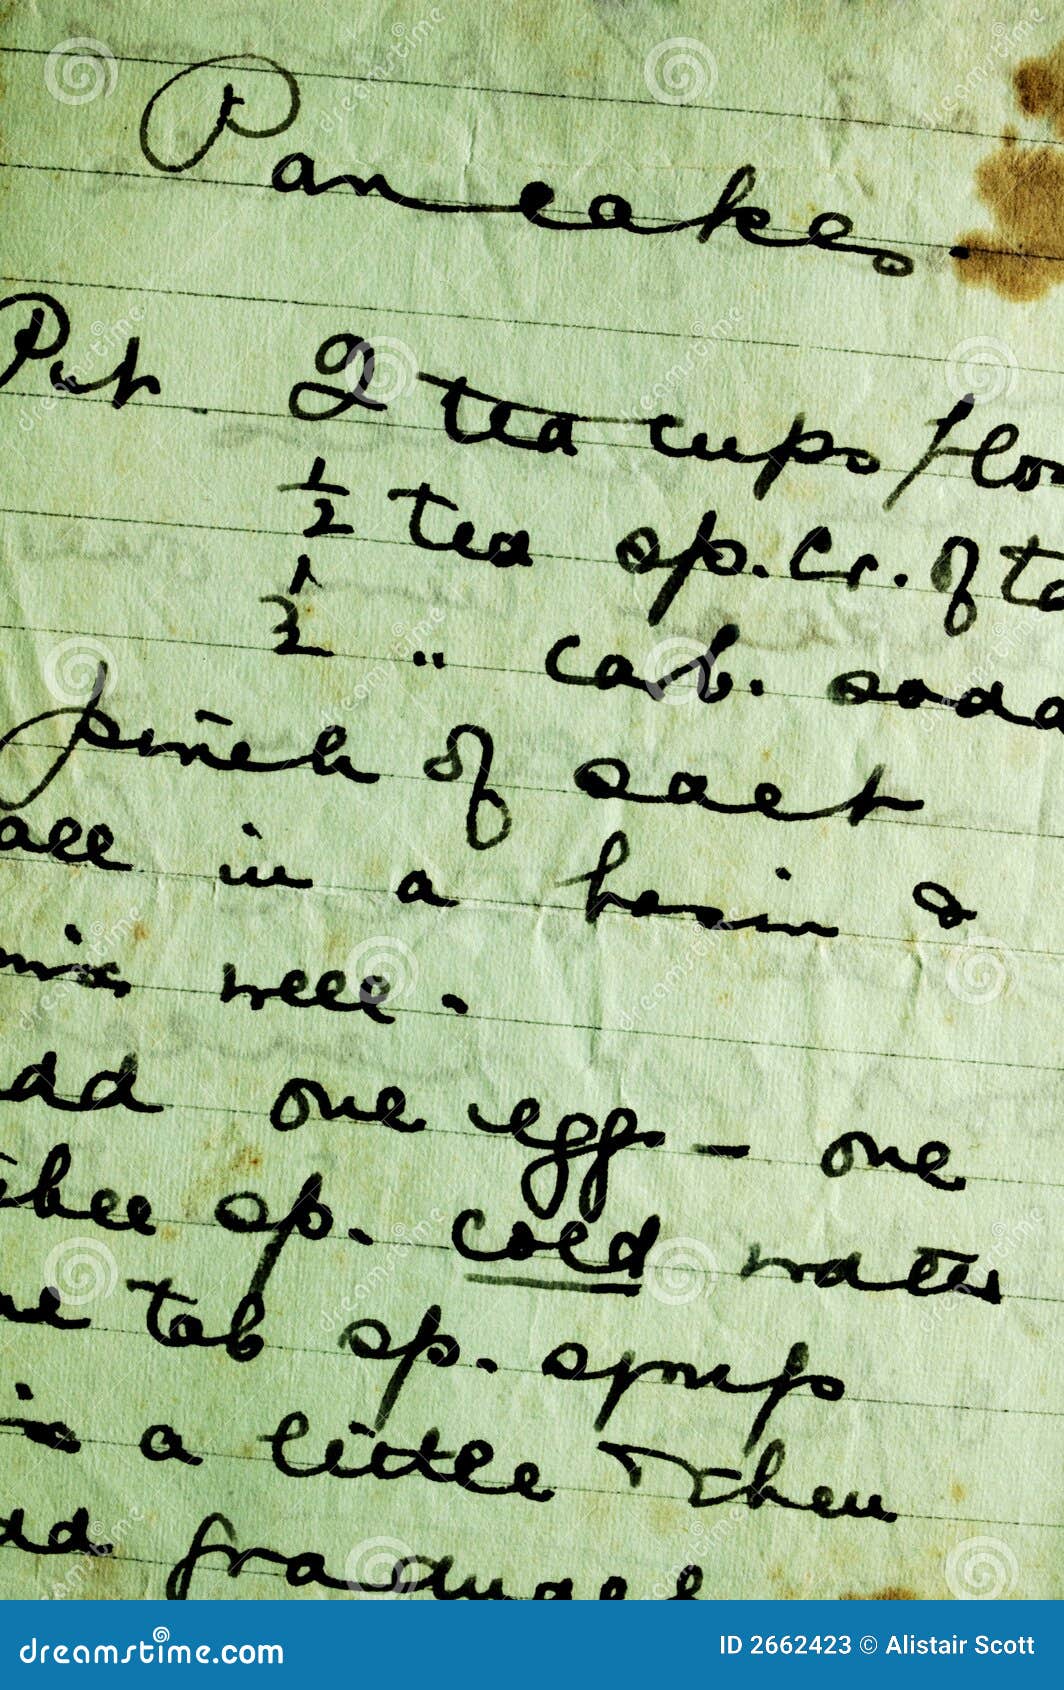 Pancakes.
Put 2 tea cups flou
1/2 tea sp. Cr. of ta
1/2 " carb. soda
pinch of salt
all in a basin &
mix well.
add one egg - one
sp. cold water
tab sp. syrup
mix a little then
add gradual
dreamstime.com
ID 2662423 © Alistair Scott